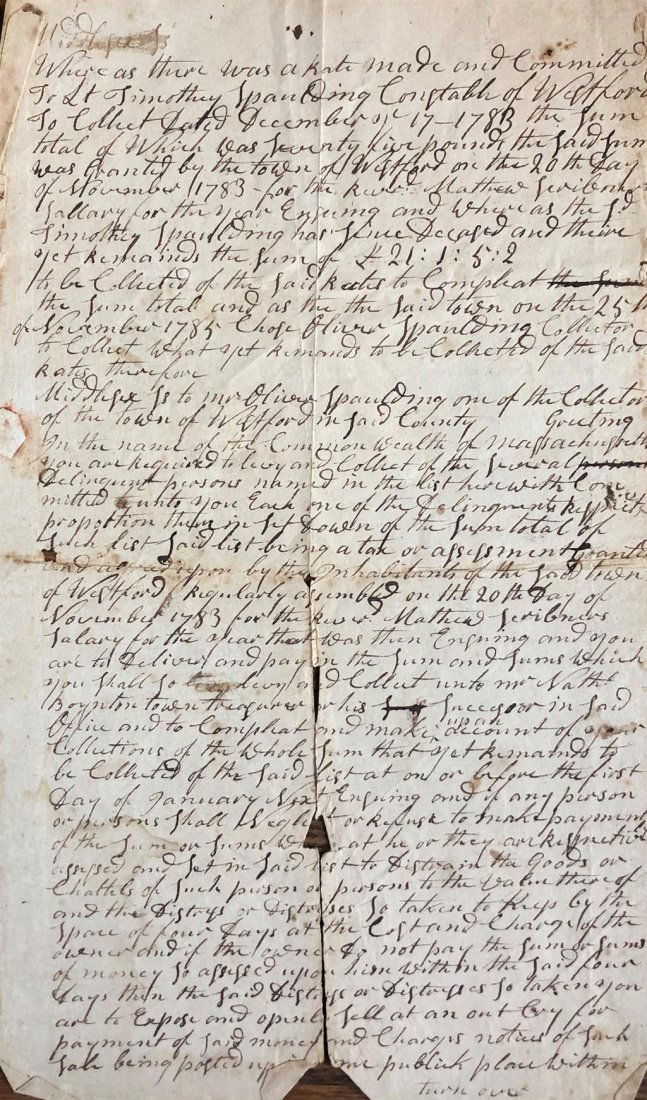 Middlesex Ss
Where as there was a Rate made and Committed
To Lt Timothey Spaulding Constable of Westford
To Collect Dated December ye 17-1783 the Sum
total of Which was Seventy five pounds the Said Sum
was Granted by the town of Westford on the 20th Day
of November 1783 - for the Revr Mathew Scribner
Sallary for the year Ensuing and Where as the Sd
Timothey Spaulding has Since Deceased and there
yet Remainds the Sum of £ 21: 1: 5: 2
to be Collected of the Said Rates to Compleat the Sum
the Sum total and as the the Said town on the 25
of November 1785 Chose Oliver Spaulding Collector
to Collect What yet Remands to be Collected of the Said
Rates therefore
Middlesex Ss to mr Oliver Spaulding one of the Collector
of the town of Westford in Said County Greeting
In the name of the Commonwealth of Massachusetts
you are Required to levy and Collect of the Several persons
Delinquent persons named in the list herewith Com
mitted unto you Each one of the Delinquents Respective
proportion therein Set Down of the Sum total of
Such list Said list being a tax or assessment Granted
and agreed upon by the Inhabitants of the Said town
of Westford Regularly assembled on the 20th Day of
November 1783 for the Revrd Mathew Scribners
Salary for the year that Was then Ensuing and you
are to Deliver and pay in the Sum and Sums Which
you Shall So levy and Collect unto mr Nathl
Boynton town treasurer or his Successor in Said
Office and to Compleat and make upan account of your
Collections of the Whole Sum that yet Remainds to
be Collected of the Said list at on or before the first
Day of January Next Ensuing and if any person
or persons Shall Neglect or Refuse to make payment
of the Sum or Sums at he or they are Respective
assessed and Set in Said list to Distrain the Goods or
Chattels of Such person or persons to the Value there of
and the Distress or Distresses So taken to Keep by the
Space of four Days at the Cost and Charge of the
owner and if the owner Do not pay the Sum or Sums
of money So assessed upon him Within the Said four
days then the Said Distress or Distresses So taken you
are to Expose and openly Sell at an out Cry for
payment of Said money and Charges notice of Such
Sale being posted up in me publick place within
turn over